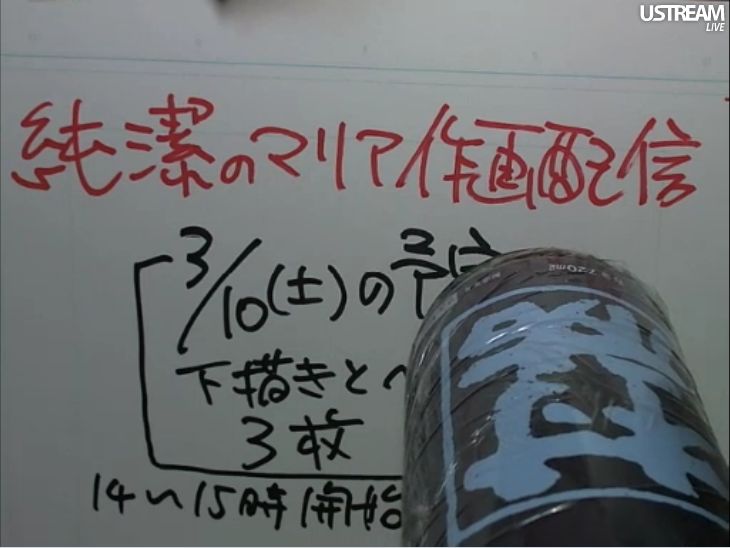 USTREAM
LIVE
純潔のマリア作画配信
3/10(土)の予定
下描きとペ
3枚
14〜15時開始
720ml